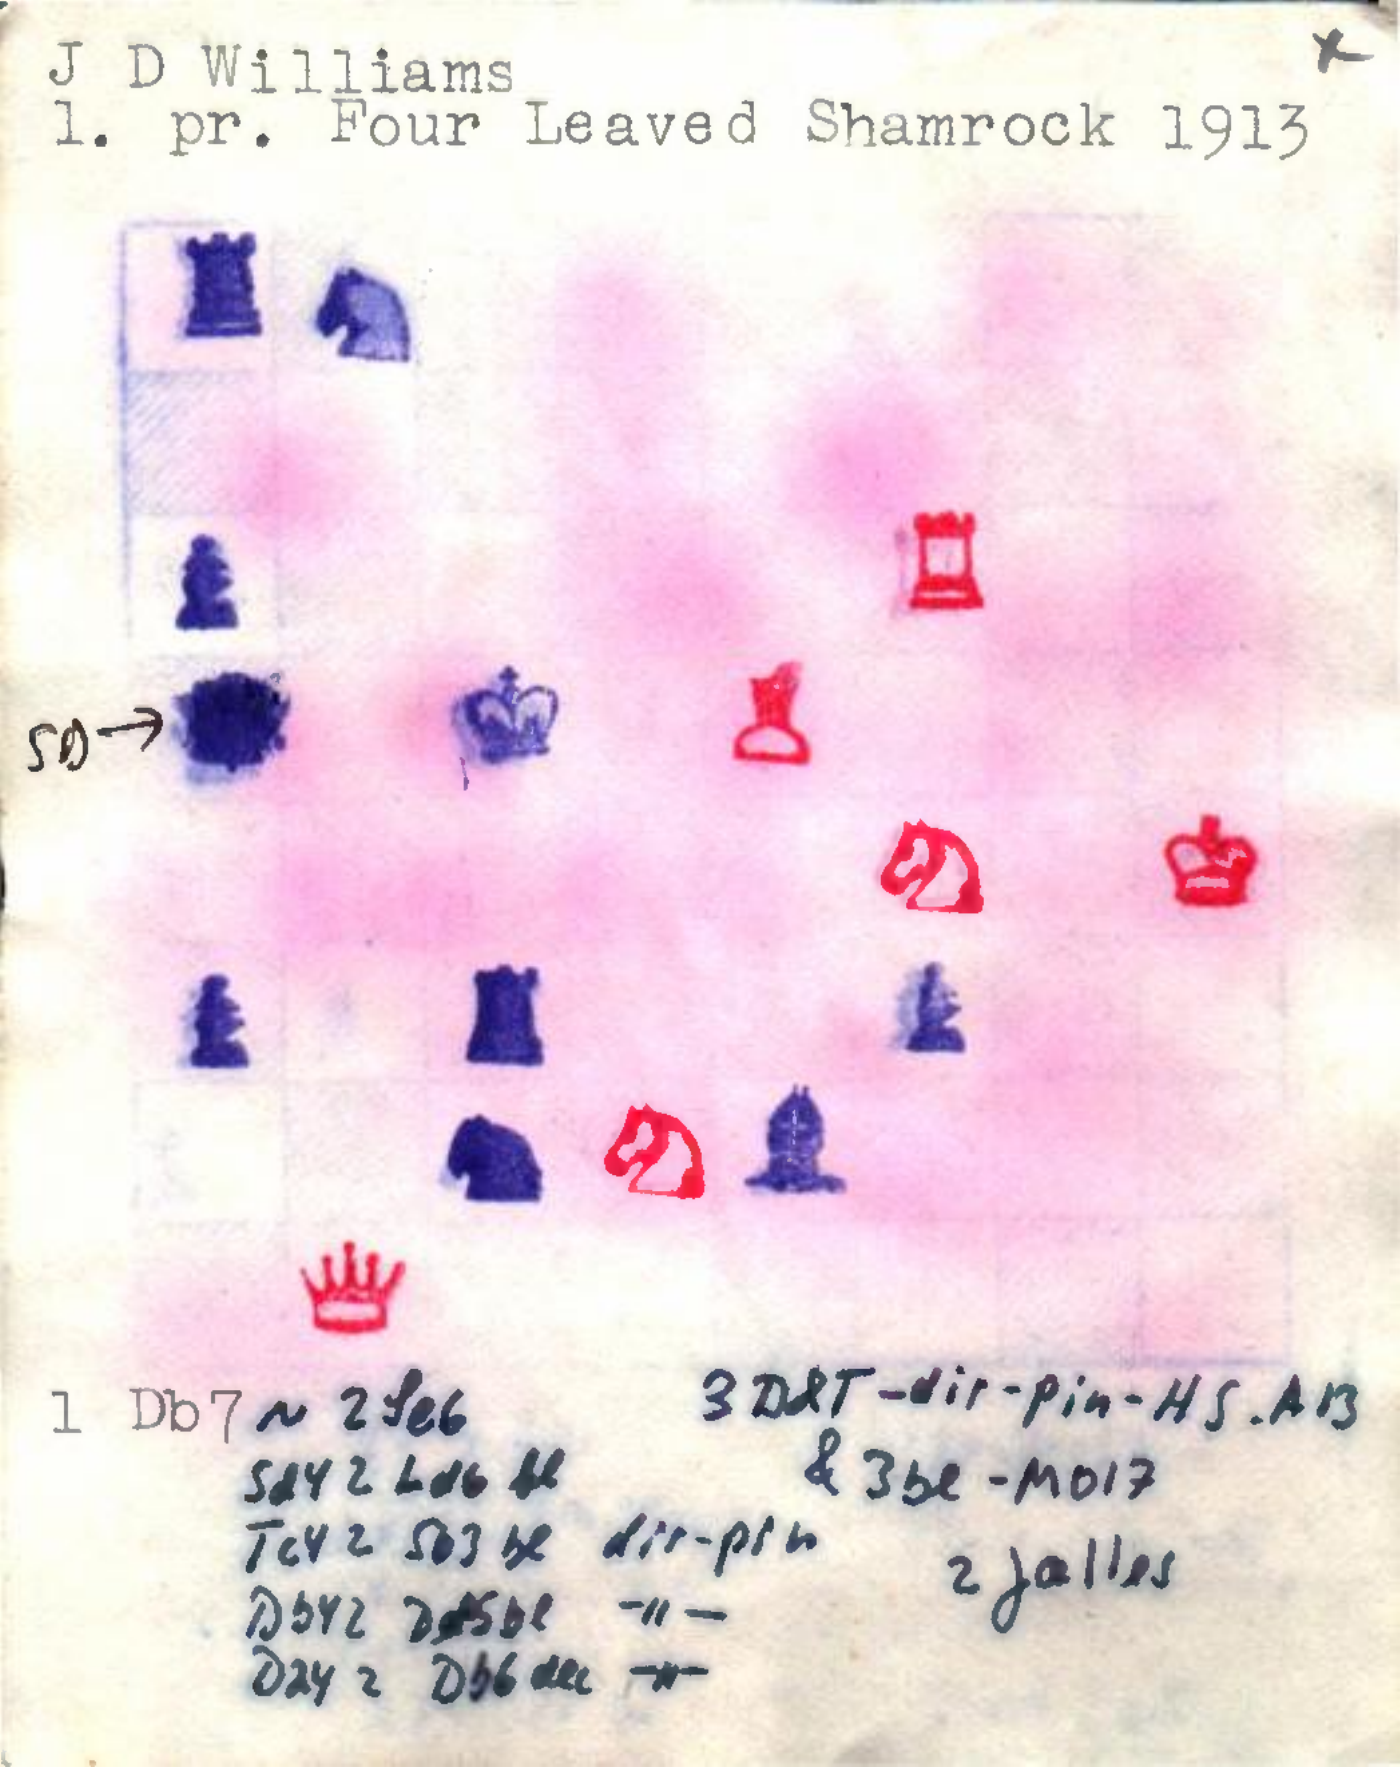 x
J D Williams
1. pr. Four Leaved Shamrock 1913
SD→
1 Db7 ~ 2 Se6
Sd4 2 Ld6 bl
Tc4 2 Sb3 bl dir-pin
Db4 2 Dd5 bl -"-
Da4 2 Db6 -"-
3 D&T-dir-pin-HS.A13
& 3bl -M017
2 Jalles